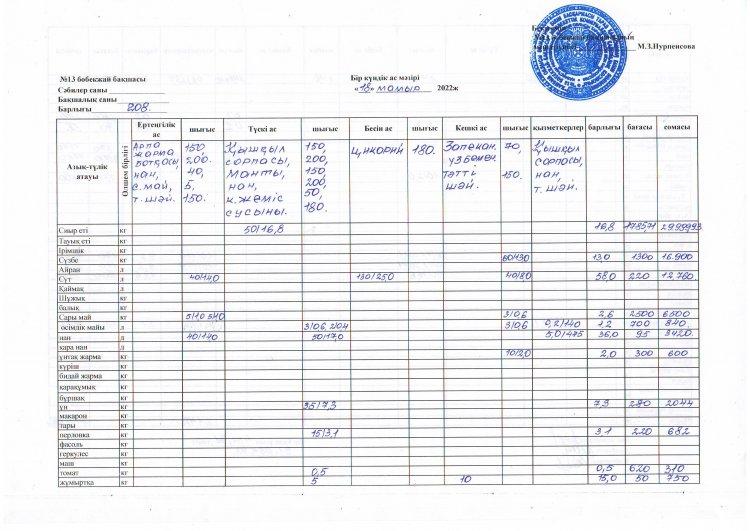 М.З.Нурпеисова
№13 бөбекжай бақшасы
Сәбилер саны
Бақшалық саны
Барлығы 208.
Бір күндік ас мәзірі
«18» мамыр 2022ж
Азық-түлік атауы Өлшем бірлігі Ертеңгілік ас шығыс Түскі ас шығыс Бесін ас шығыс Кешкі ас шығыс қызметкерлер барлығы бағасы сомасы
Арпа 150, 150, Цикорий 180. Запекан. 70,
жарма 200. сорпасы, 200, сорпасы,
ботқасы, 40, манты, 150 тәтті нан,
нан, 5, нан, 200, шәй. 150. т.шәй.
с.май, 150. к.жеміс 50,
т.шәй. сусыны. 180.
Сиыр еті кг 50/16,8 16,8
Тауық еті кг
Ірімшік кг
Сүзбе кг 60/130 13,0 1300 16.900
Айран л
Сүт л 40/140 130/250 40/80 58,0 220 12,760.
Қаймақ л
Шұжық кг
балық кг
Сары май кг 3/0.6 2,6 2500 6500
өсімдік майы л 3/0,6 0,2/140 1,2 700 840.
нан л 40/140 50/17,0 36,0 95 3420
қара нан л
ұнтақ жарма кг 10/2,0 2,0 300 600
күріш кг
бидай жарма кг
қарақұмық кг
бұршақ кг
ұн кг 35/7,3 7,3 280 2044
макарон кг
тары кг
перловка кг 15/3,1 3,1 220 682
фасоль кг
геркулес кг
маш кг
томат кг 0,5 0,5 620 310
жұмыртқа кг 5 10 15,0 50 750